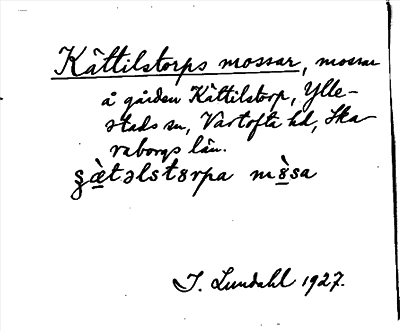 Kättilstorps mossar, mossar
å gården Kättilstorp, Ylle-
stads sn, Vartofta hd, Ska-
raborgs län.
I. Lundahl 1927.